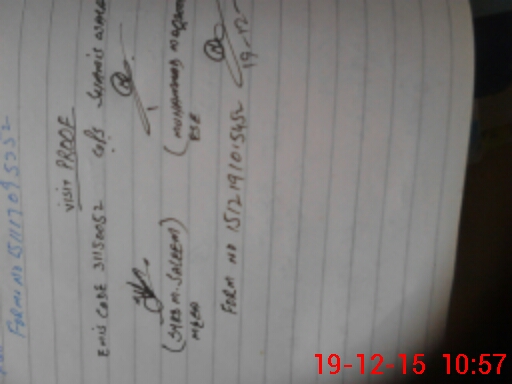 Form NO 151117095252
VISIT PROOF
EMIS CODE 31150052 GPS
(SYED M. SALEEM)
(MUHAMMAD
MEA
ESE
FORM NO 1512191015452
19-12-
19-12-15 10:57